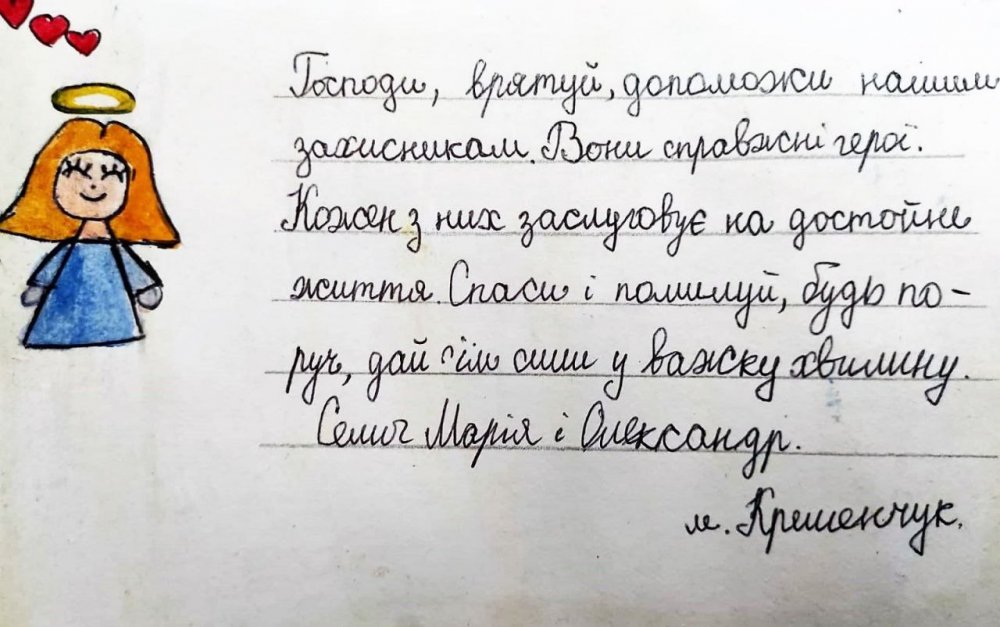 Господи, врятуй, допоможи нашим
захисникам. Вони справжні герої.
Кожен з них заслуговує на достойне
життя. Спаси і помилуй, будь по-
руч, дай їм сили у важку хвилину.
Марія і Олександр.
м. Кременчук.